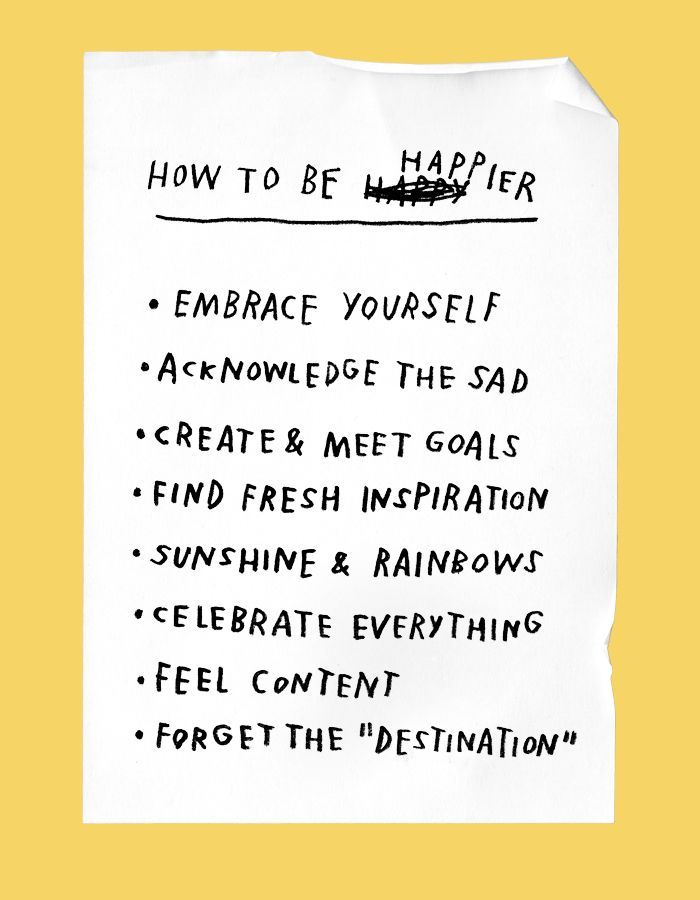 HOW TO BE HAPPY HAPPIER
• EMBRACE YOURSELF
• ACKNOWLEDGE THE SAD
• CREATE & MEET GOALS
• FIND FRESH INSPIRATION
• SUNSHINE & RAINBOWS
• CELEBRATE EVERYTHING
• FEEL CONTENT
• FORGET THE "DESTINATION"